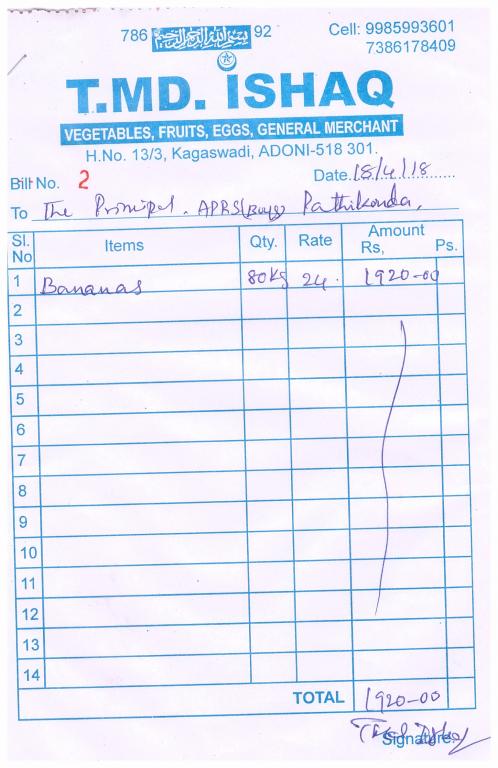 786 بسم الله الرحمن الرحيم 92
Cell: 9985993601
7386178409
T.MD. ISHAQ
VEGETABLES, FRUITS, EGGS, GENERAL MERCHANT
H.No. 13/3, Kagaswadi, ADONI-518 301.
Bill No. 2 Date. 18/4/18
To The Principal. APRS(Boys) Pathikonda,
Sl. No Items Qty. Rate Amount Rs, Ps.
1 Bananas 80Kg 24. 1920-00
2
3
4
5
6
7
8
9
10
11
12
13
14
TOTAL 1920-00
Signature.